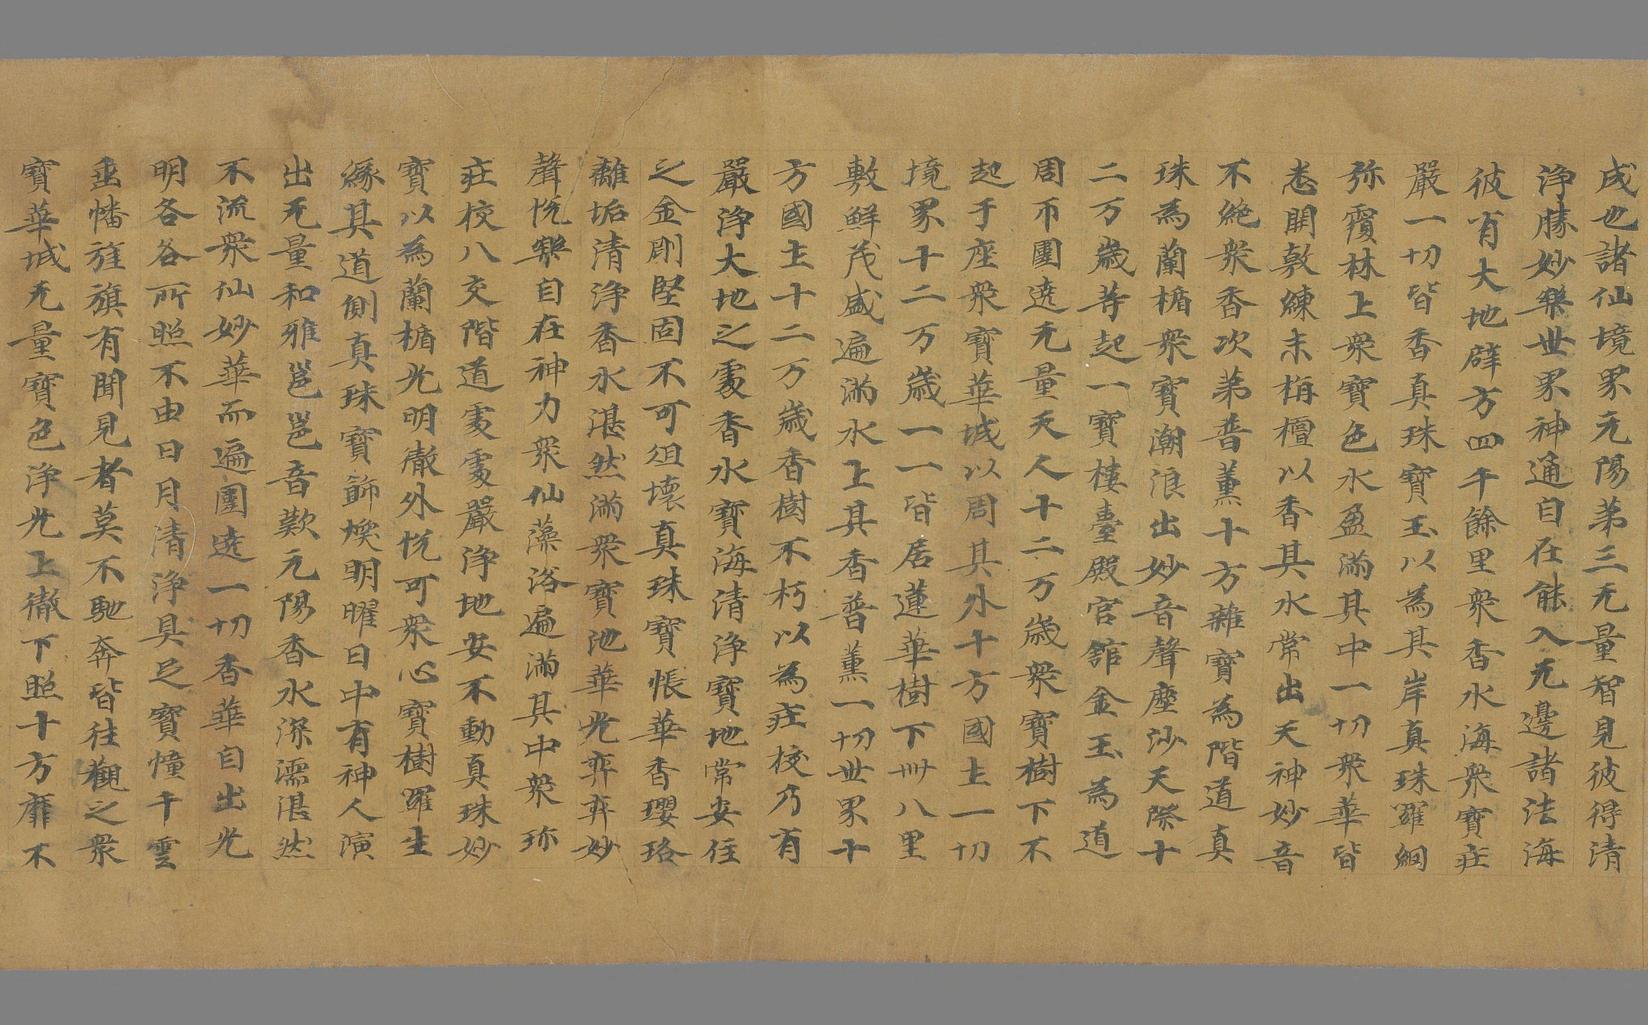 成也諸仙境界无陽第三无量智見彼得清
淨勝妙樂世界神通自在能入无邊諸法海
彼有大地辟方四千餘里衆香水海衆寶莊
嚴一切皆香真珠寶玉以為其岸真珠羅網
弥覆林上衆寶色水盈滿其中一切衆華皆
悉開敷練末栴檀以香其水常出天神妙音
不絶衆香次第普薰十方雜寶為階道真
珠為蘭楯衆寶潮浪出妙音聲塵沙天際十
二万歲等起一寶樓臺殿宮舘金玉為道
周帀團遶无量天人十二万歲衆寶樹下不
起于座衆寶華城以周其外十方國土一切
境界十二万歲一一皆居蓮華樹下卌八里
敷鮮茂盛遍滿水上其香普薰一切世界十
方國土十二万歲香樹不朽以為莊校乃有
嚴淨大地之處香水寶海清淨寶地常安住
之金剛堅固不可俎壞真珠寶帳華香瓔珞
離垢清淨香水湛然滿衆寶池華光弈弈妙
聲悅樂自在神力衆仙藻浴遍滿其中衆珎
莊校八交階道處處嚴淨地安不動真珠妙
寶以為蘭楯光明徹外悅可衆心寶樹羅生
緣其道側真珠寶飾煥明曜日中有神人演
出无量和雅邕邕音歎元陽香水深濡湛然
不流衆仙妙華而遍團遶一切香華自出光
明各各所照不由日月清淨具足寶幢千雲
垂幡旌旗有聞見者莫不馳奔皆往觀之衆
寶華城无量寶色淨光上徹下照十方靡不